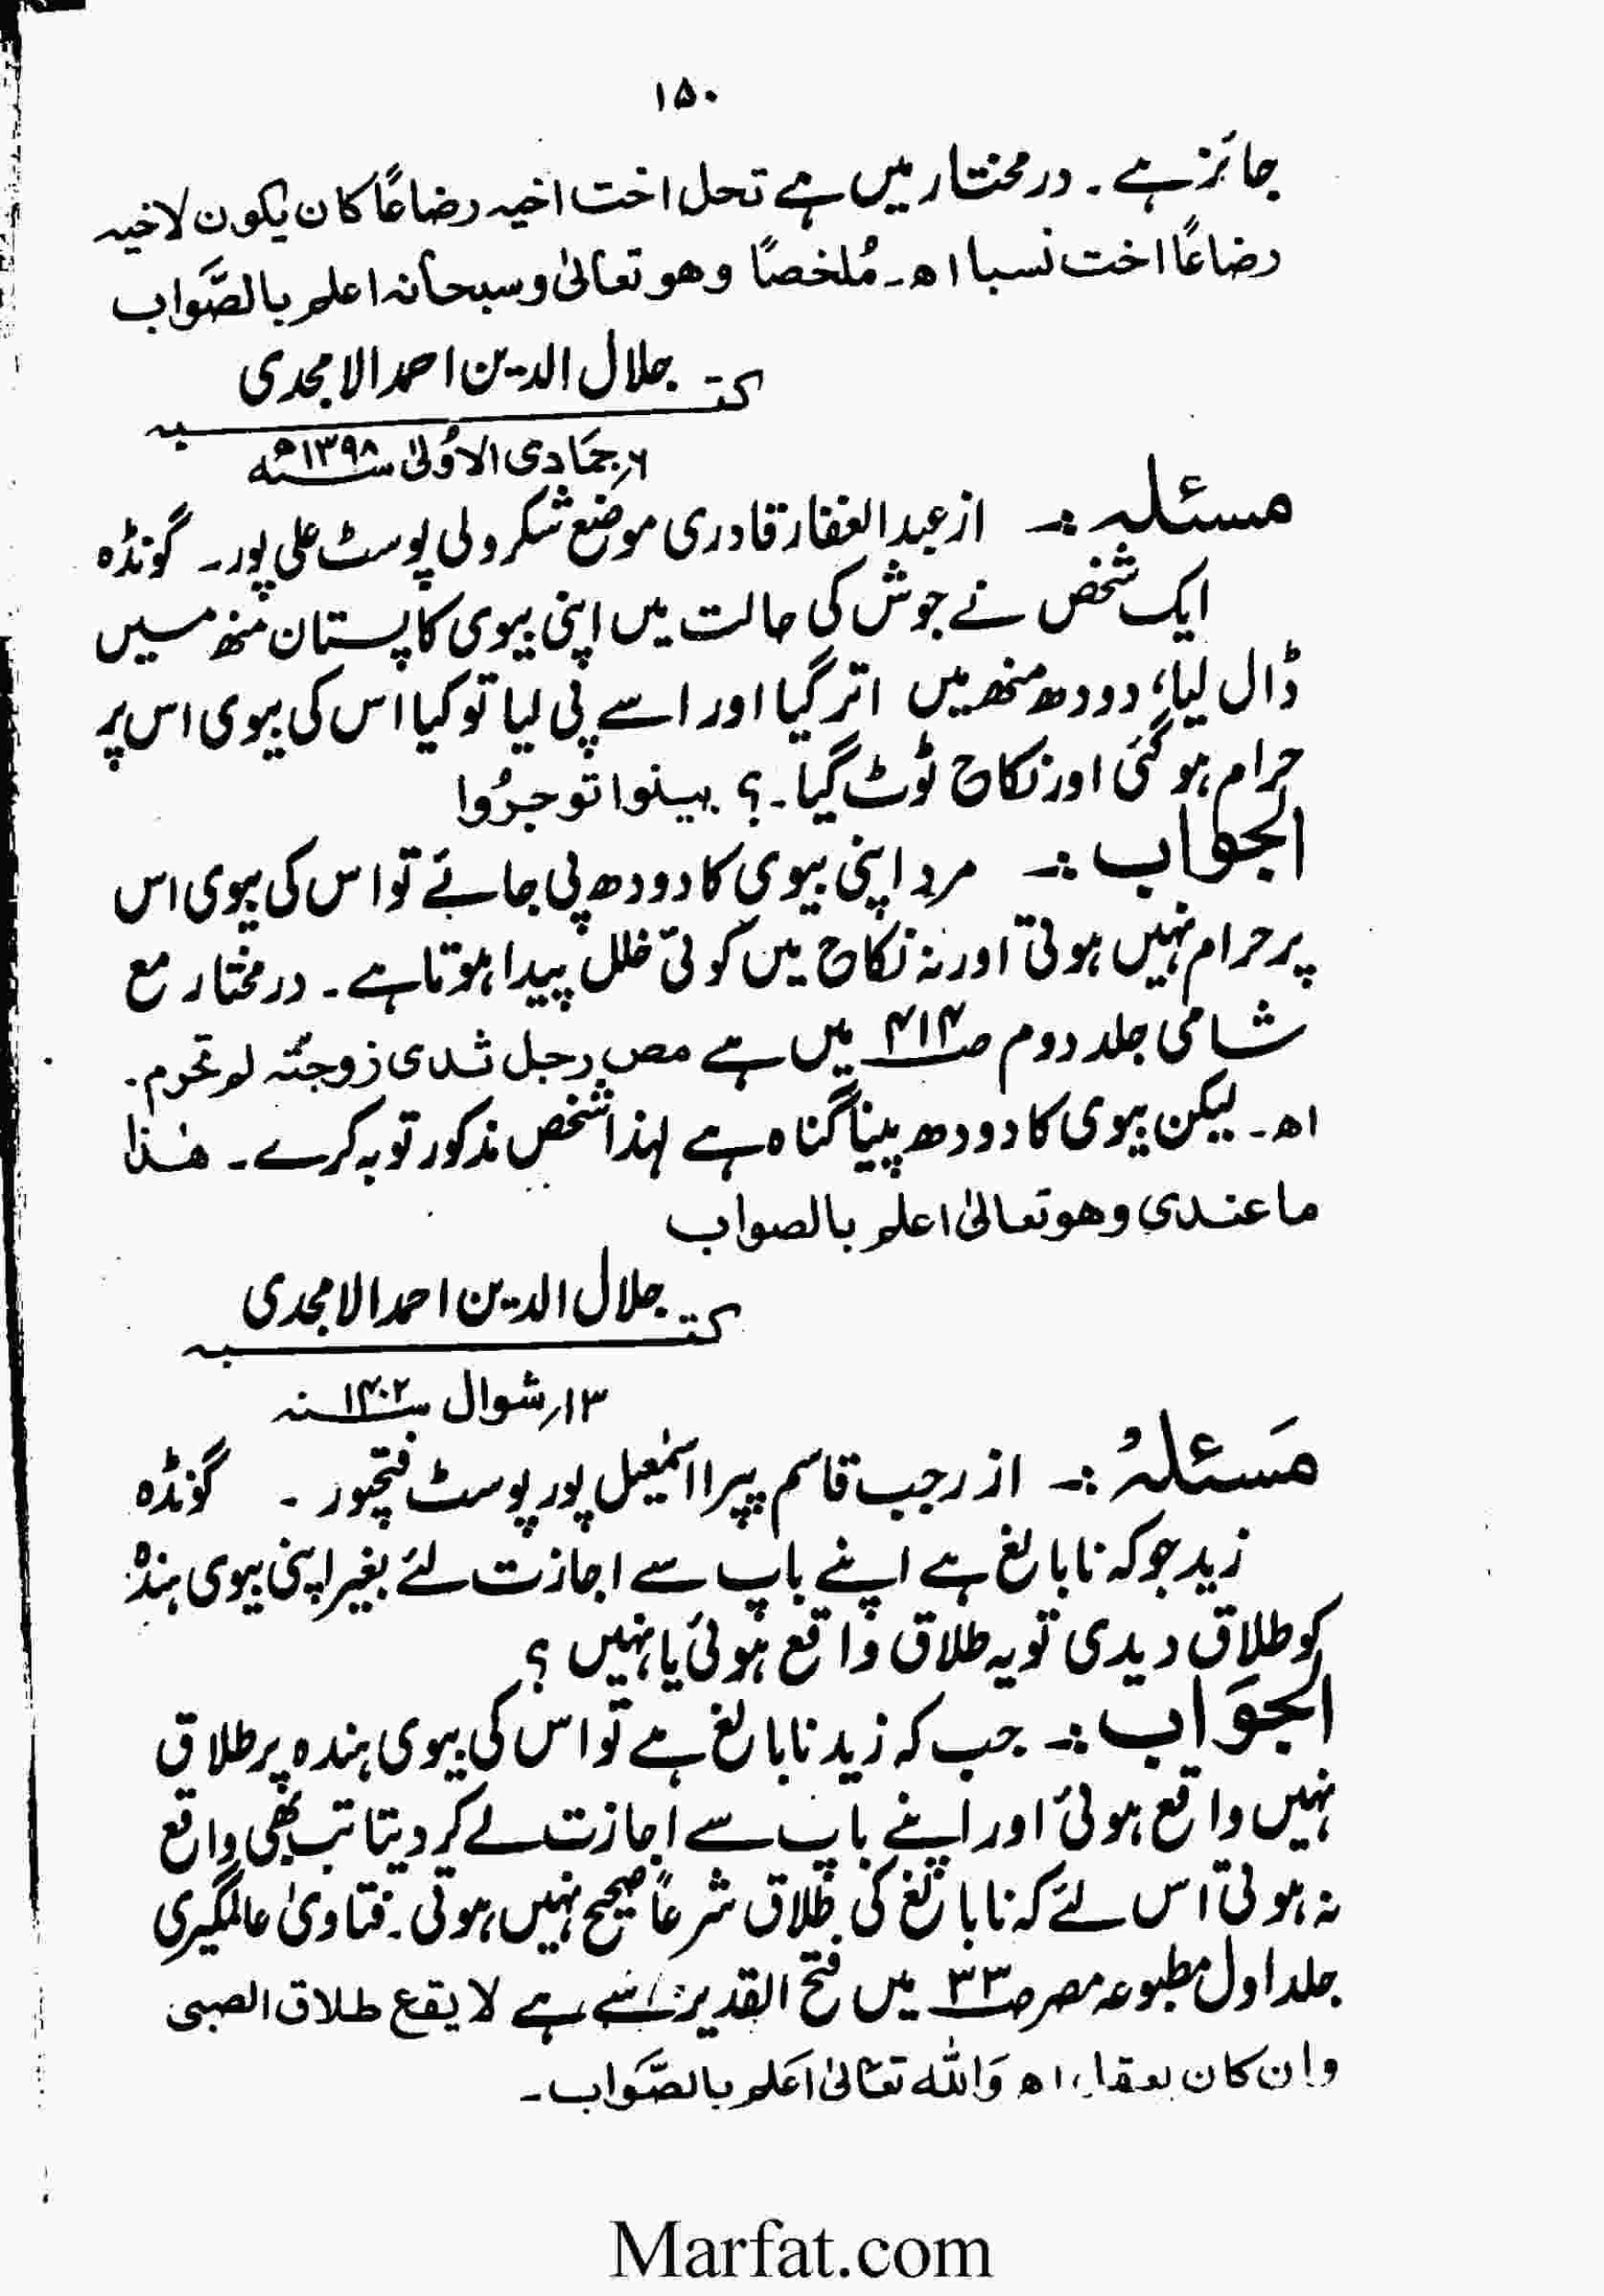 ۱۵۰
جائز ہے۔ درمختار میں ہے تحل اخت اخیہ رضاعًا کان یکون لاخیہ
رضاعًا اخت نسبا اھ۔ مُلخصًا وھو تعالیٰ وسبحانہ اعلم بالصَّواب
کتبہ جلال الدین احمد الامجدی
۶؍ جمَادی الاوُلیٰ سنہ ۱۳۹۸ھ
مسئلہ:۔ از عبدالغفار قادری موضع شکرولی پوسٹ علی پور۔ گونڈہ
ایک شخص نے جوش کی حالت میں اپنی بیوی کا پستان منھ میں
ڈال لیا، دودھ منھ میں اتر گیا اور اسے پی لیا تو کیا اس کی بیوی اس پر
حرام ہوگئی اور نکاح ٹوٹ گیا۔؟ بینوا توجرُوا
الجواب:۔ مرد اپنی بیوی کا دودھ پی جائے تو اس کی بیوی اس
پر حرام نہیں ہوتی اور نہ نکاح میں کوئی خلل پیدا ہوتا ہے۔ درمختار مع
شامی جلد دوم صـ ۴۱۴ میں ہے مص رجل ثدی زوجتہ لم تحرم۔
اھ۔ لیکن بیوی کا دودھ پینا گناہ ہے لہذا شخص مذکور توبہ کرے۔ ھٰذا
ماعندی وھو تعالیٰ اعلم بالصواب
کتبہ جلال الدین احمد الامجدی
۱۳؍ شوال سنہ ۱۴۰۲
مَسئلہُ:۔ از رجب قاسم پپرا اسمٰعیل پور پوسٹ فتحپور۔ گونڈہ
زید جو کہ نابالغ ہے اپنے باپ سے اجازت لئے بغیر اپنی بیوی ہندہ
کو طلاق دیدی تو یہ طلاق واقع ہوئی یا نہیں؟
الجَوَاب:۔ جب کہ زید نابالغ ہے تو اس کی بیوی ہندہ پر طلاق
نہیں واقع ہوئی اور اپنے باپ سے اجازت لے کر دیتا تب بھی واقع
نہ ہوتی اس لئے کہ نابالغ کی طلاق شرعاً صحیح نہیں ہوتی۔ فتاویٰ عالمگیری
جلد اول مطبوعہ مصر صـ ۳۳ میں فتح القدیر سے ہے لا یقع طلاق الصبی
وان کان یعقل اھ وَاللہ تعَالیٰ اَعلم بالصَّوَاب۔
Marfat.com